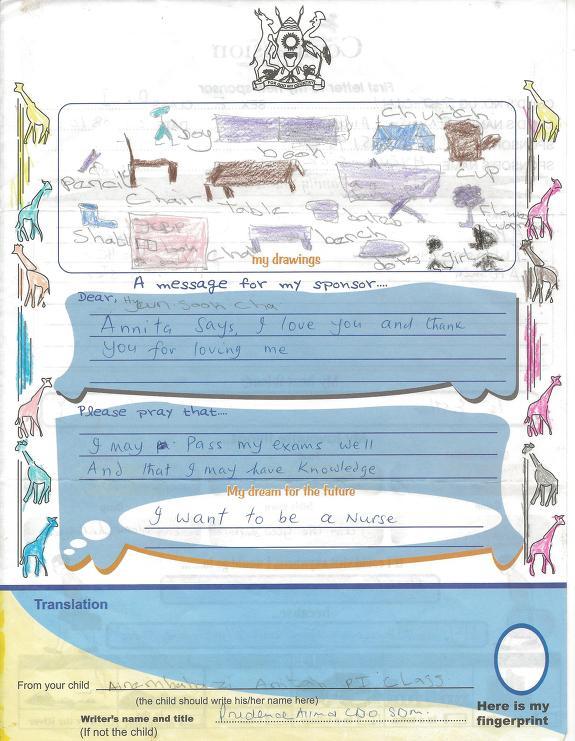 FOR GOD AND MY COUNTRY
boy
book
church
cup
Pencil
Chair
table
Flower
bench
girl
my drawings
A message for my sponsor....
Dear, Hyeun-Sook Cha
Annita Says, I love you and thank
you for loving me
Please pray that....
I may Pass my exams well
And that I may have Knowledge
My dream for the future
I want to be a Nurse
Translation
From your child Anitah P.I Class
(the child should write his/her name here)
Writer's name and title Prudence CDO SDM.
(If not the child)
Here is my
fingerprint